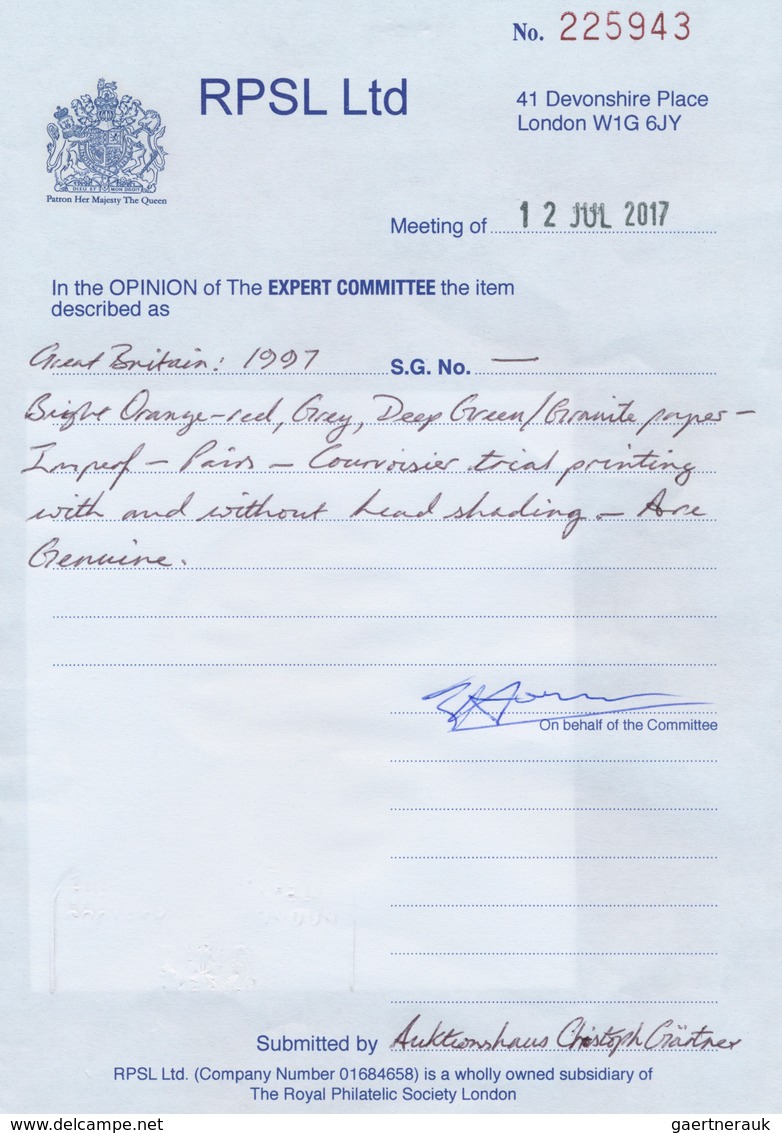 No. 225943
RPSL Ltd
41 Devonshire Place
London W1G 6JY
DIEU ET MON DROIT
Patron Her Majesty The Queen
Meeting of 12 JUL 2017
In the OPINION of The EXPERT COMMITTEE the item
described as
Great Britain: 1997 S.G. No. —
Bright Orange-red, Grey, Deep Green/Granite paper –
Imperf – Pairs – Courvoisier trial printing
with and without head shading – Are
Genuine.
On behalf of the Committee
Submitted by Auktionshaus Christoph Gärtner
RPSL Ltd. (Company Number 01684658) is a wholly owned subsidiary of
The Royal Philatelic Society London
gaertnerauk